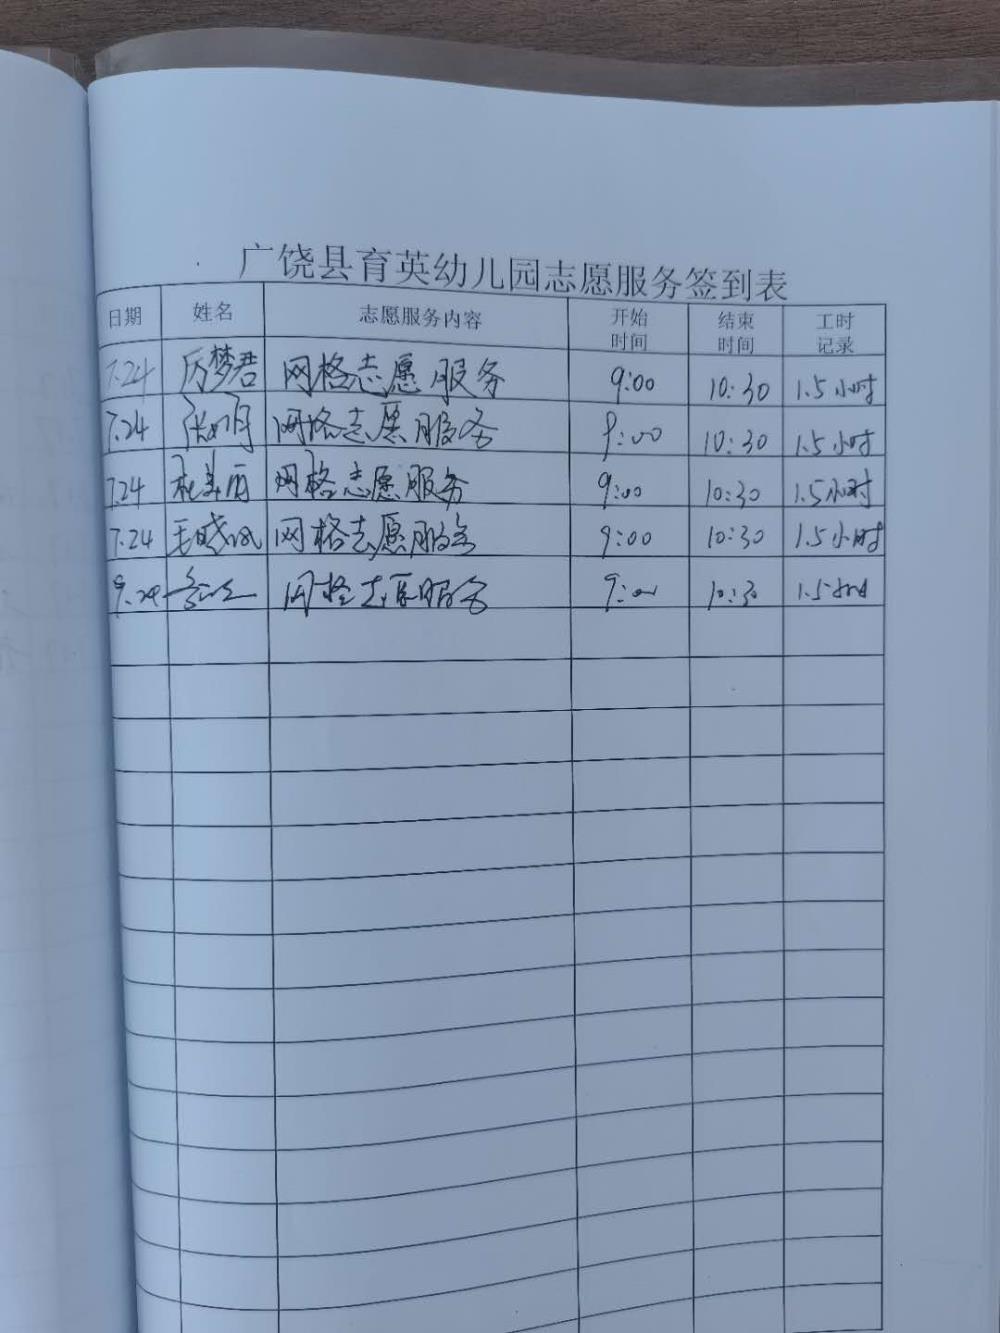 广饶县育英幼儿园志愿服务签到表
日期 姓名 志愿服务内容 开始时间 结束时间 工时记录
7.24 厉梦君 网格志愿服务 9:00 10:30 1.5小时
7.24 网络志愿服务 9:00 10:30 1.5小时
7.24 杜美丽 网格志愿服务 9:00 10:30 1.5小时
7.24 王晓 网格志愿服务 9:00 10:30 1.5小时
9.24 网格志愿服务 9:00 10:30 1.5小时